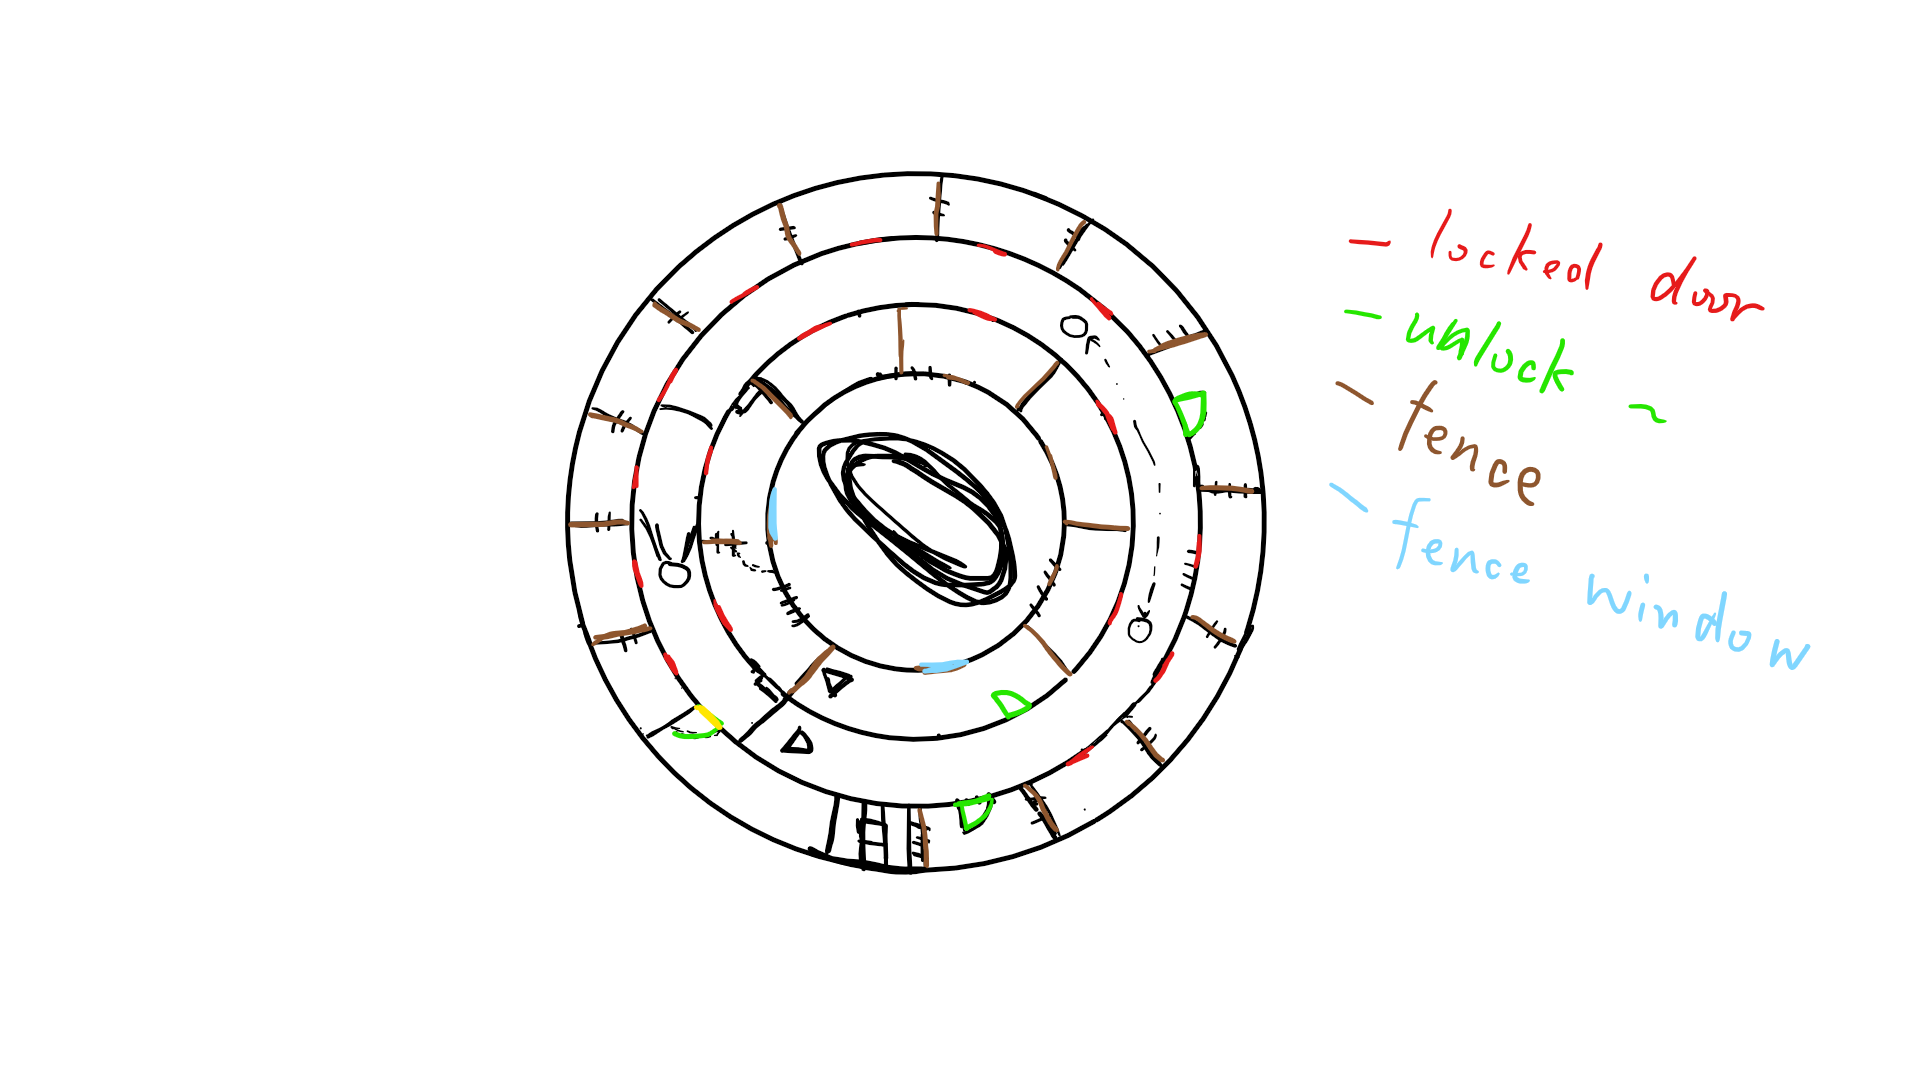 - locked door
- unlock ~
- fence
- fence window